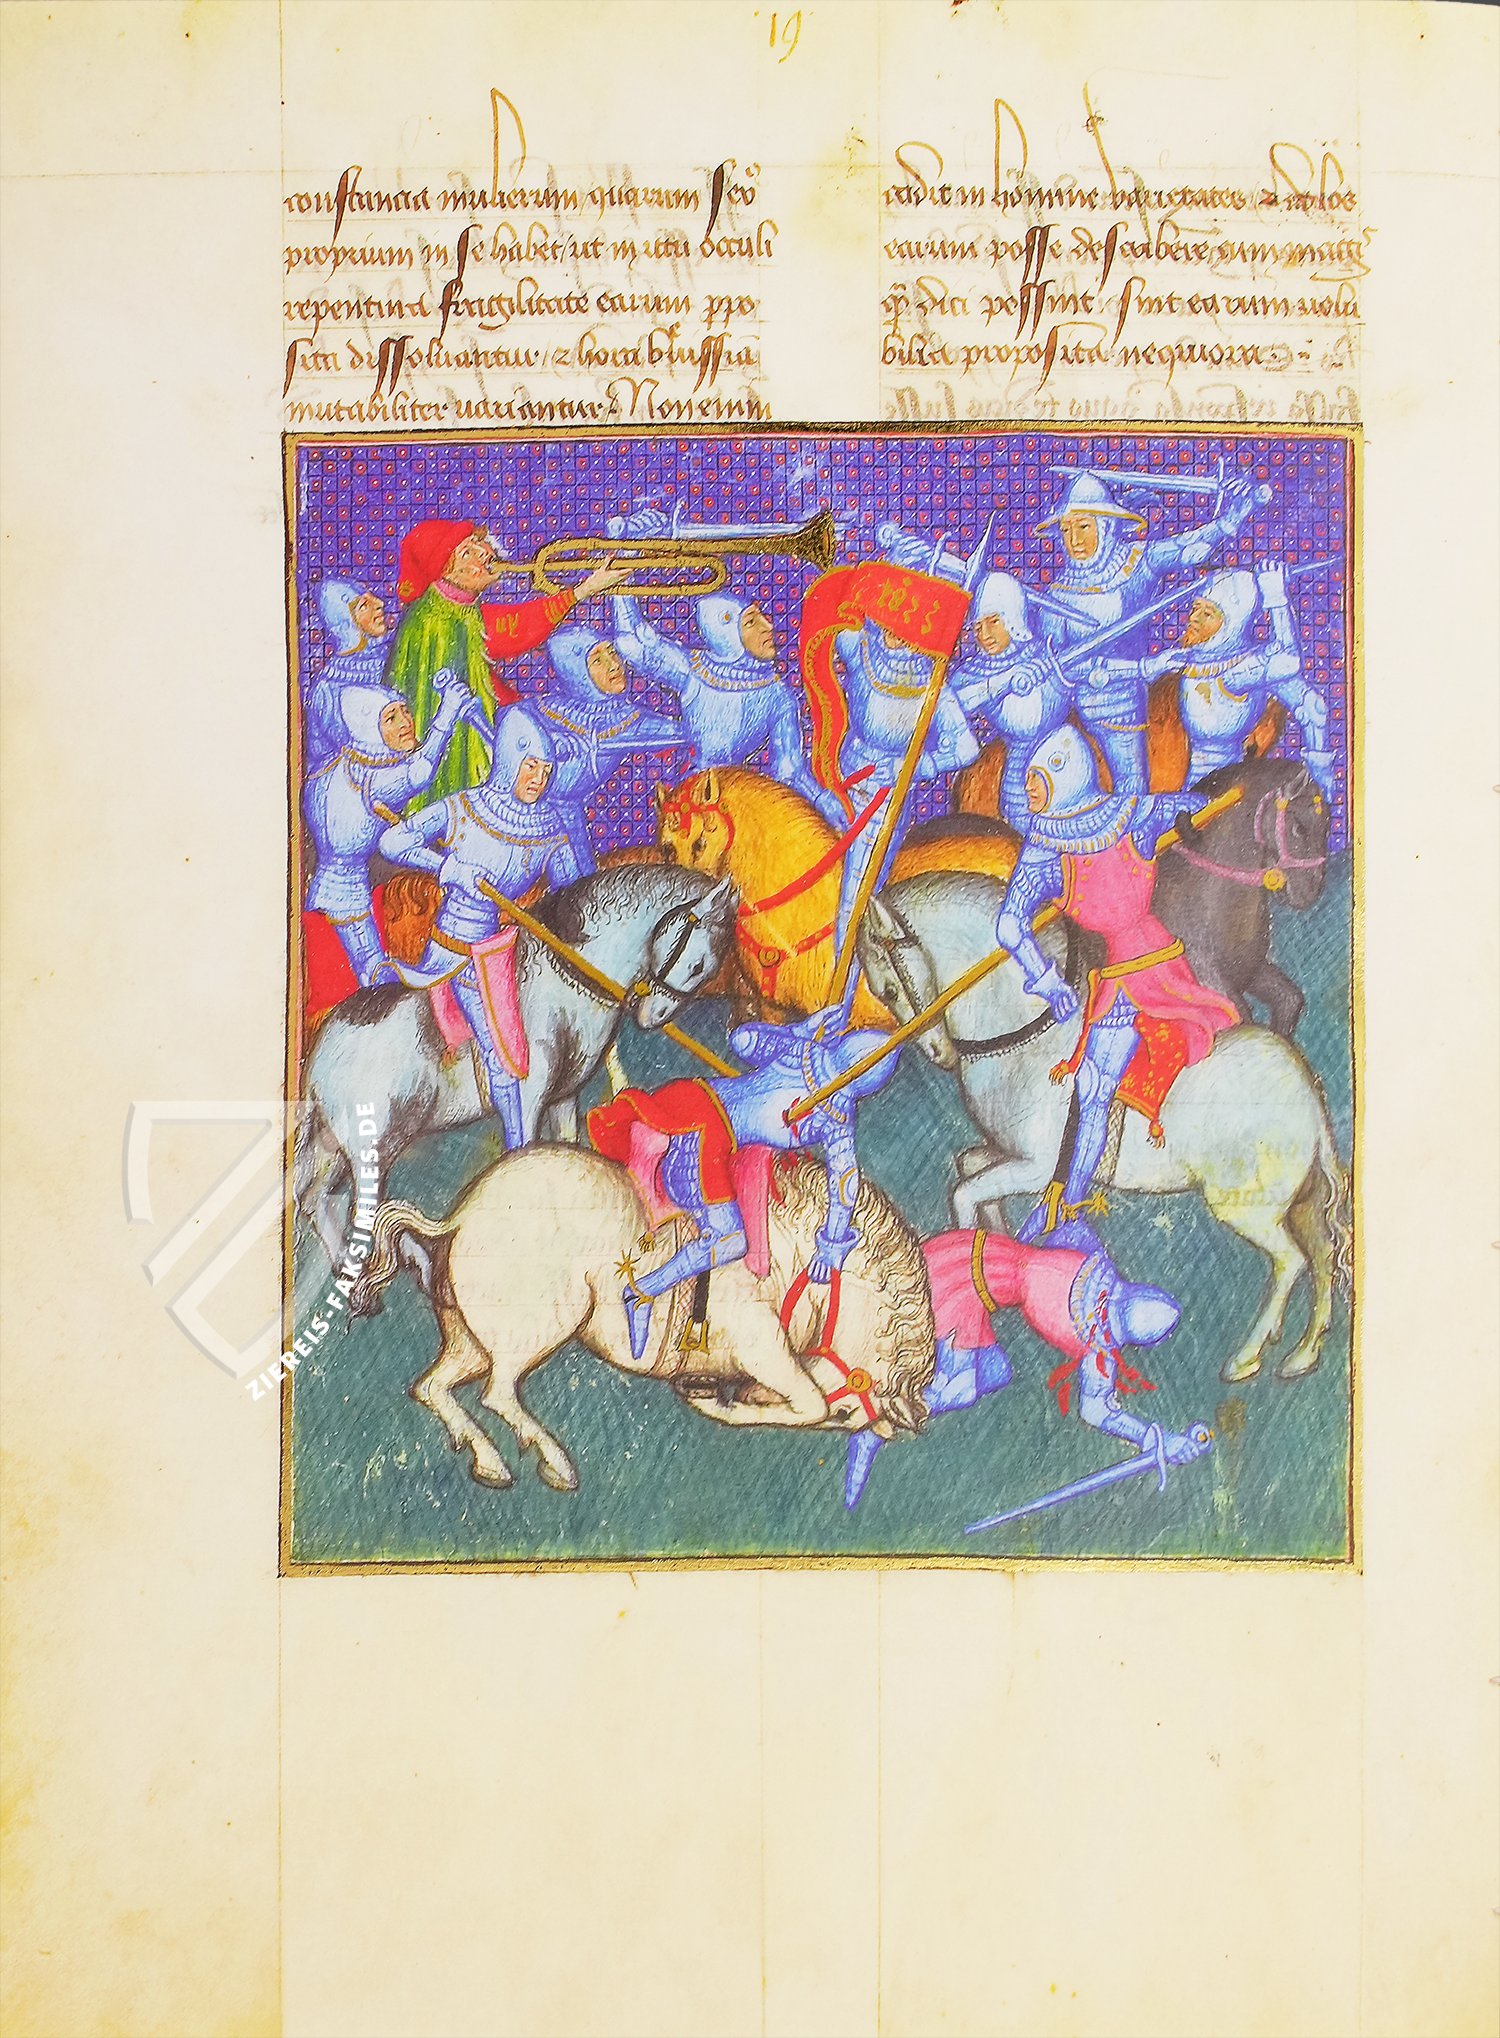 19
constancia mulierum quarum sexꝰ
proprium in se habet / ut in ictu occuli
repentina fragilitate earum propo
sita dissoluantur / ⁊ hora breuissima
mutabiliter uariantur. Non enim
cadit in homine varietates ⁊ dolos
earum posse describere, quin magis
quam dici possint sint earum uolu
bilia proposita nequiora
ZIEREIS-FAKSIMILES.DE